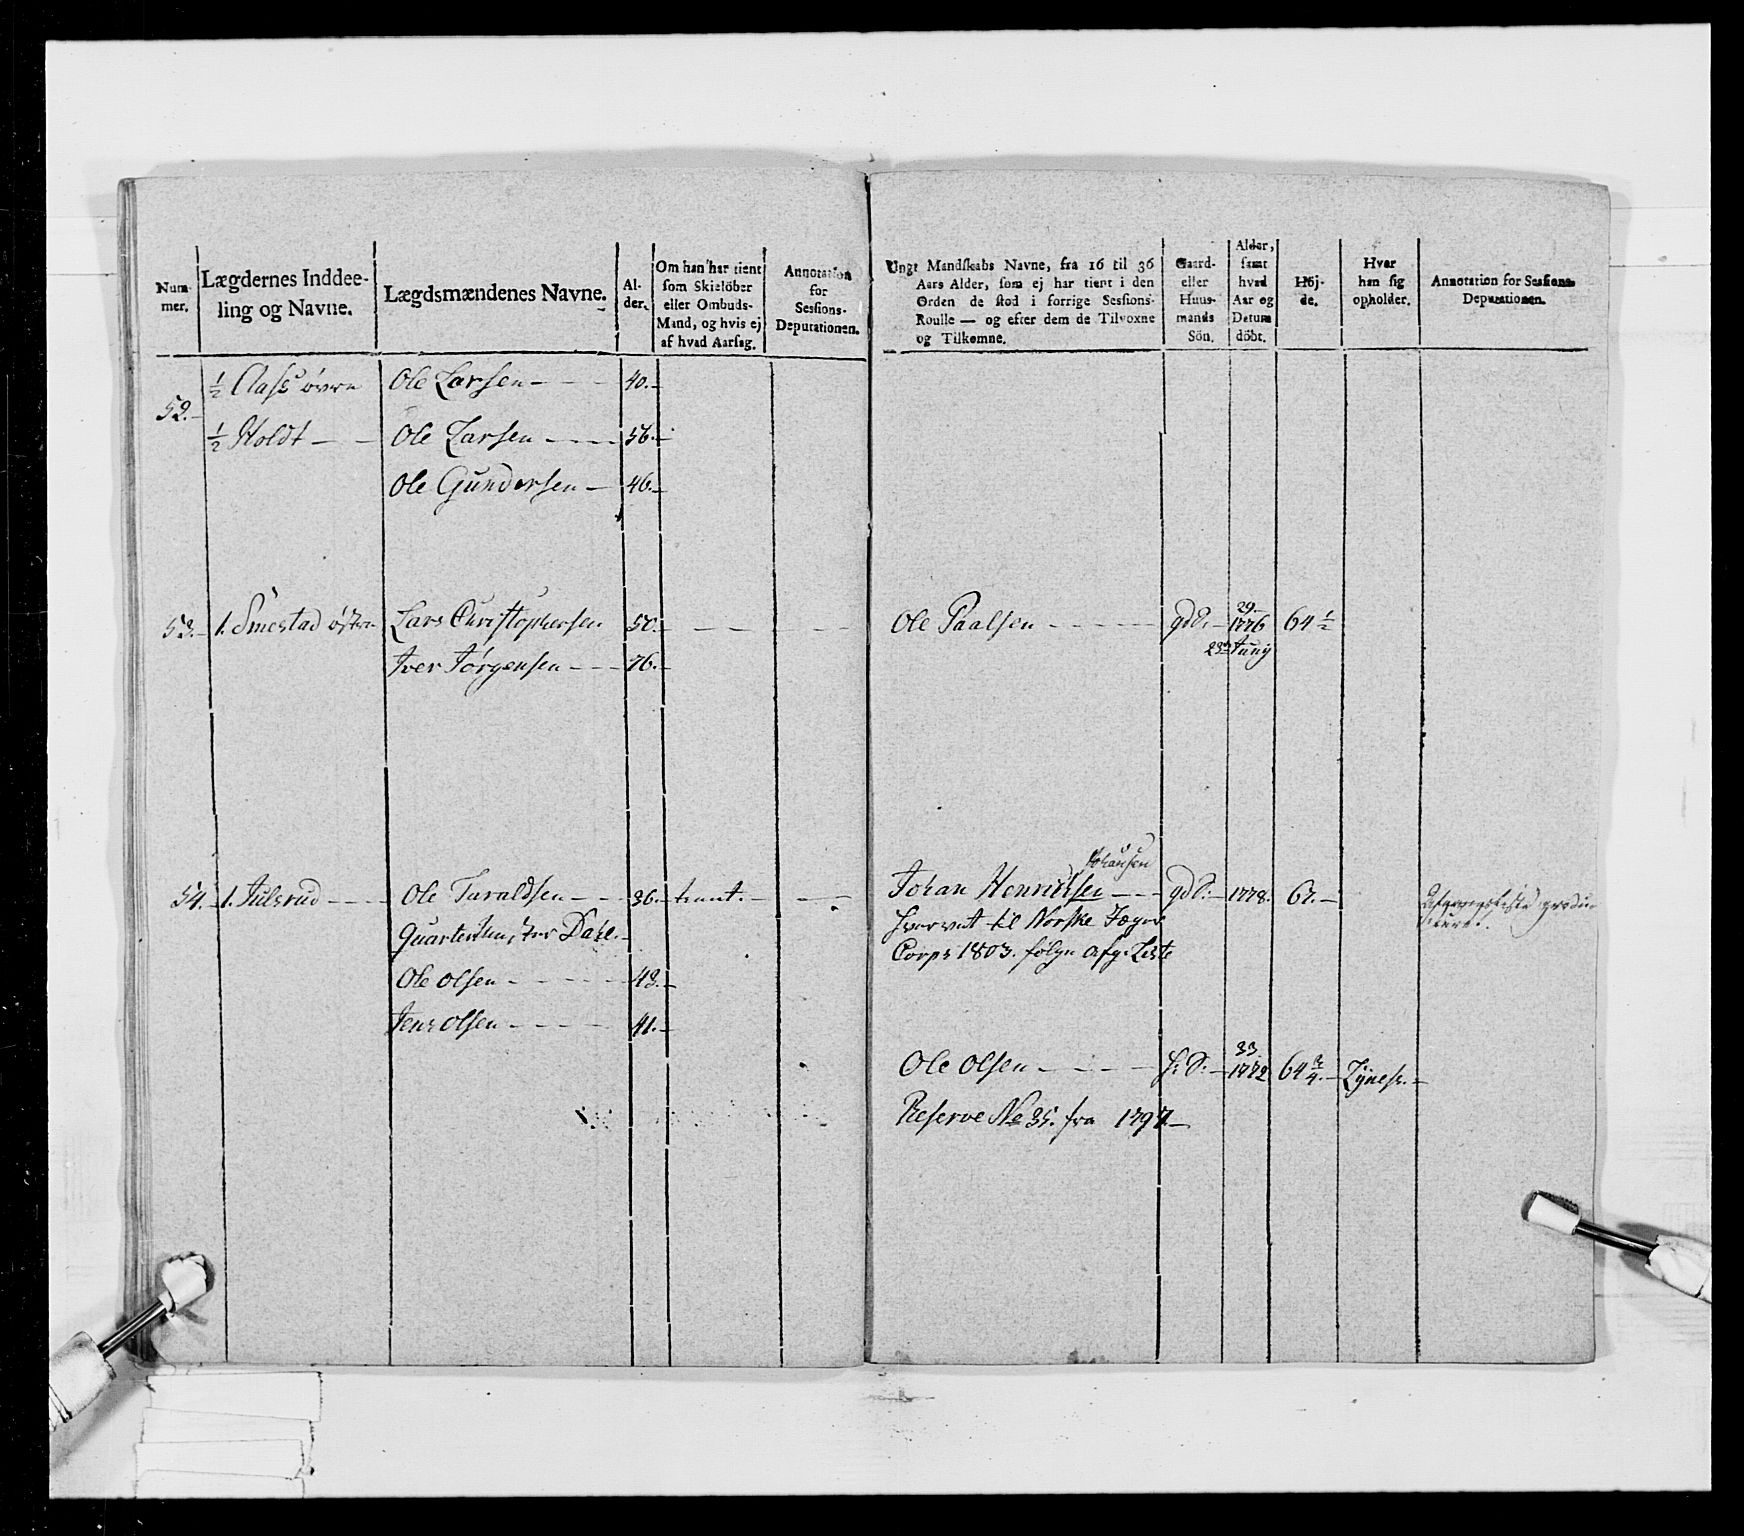 Num-
mer.
Lægdernes Inddee-
ling og Navne.
Lægdsmændenes Navne.
Al-
der.
Om han har tient
som Skielöber
eller Ombuds-
Mand, og hvis ej
af hvad Aarsag.
Annotation
for
Sessions-
Deputationen.
Ungt Mandskabs Navne, fra 16 til 36
Aars Alder, som ej har tient i den
Orden de stod i forrige Sessions-
Roulle — og efter dem de Tilvoxne
og Tilkomne.
Gaard-
eller
Huus-
mands
Sön.
Alder,
samt
hvad
Aar og
Datum
döbt.
Höj-
de.
Hvor
han sig
opholder.
Annotation for Sessions-
Deputationen.
52.
1/2 Aase øvre Ole Larsen 40.
1/2 Holdt Ole Larsen 56.
Ole Gundersen 46.
53. 1. Smestad østre Lars Christophersen 50.
Iver Jörgensen 76.
Ole Paalsen gd S. 29. 1776 64 1/2
23de Junij
54. 1. Julsrud Ole Taraldsen 36. tient.
Quarterm, Iver Dahl.
Ole Olsen 43.
Jens Olsen 41.
Johansen
Johan Henriksen gd S. 1778. 67. Afgangsliste produ-
ceret.
hvervet til Norske Jæger
Corps 1803. følge Afg. Liste
Ole Olsen h. S. 33. 1772 64 3/4.
Reserve No 35. fra 1797.